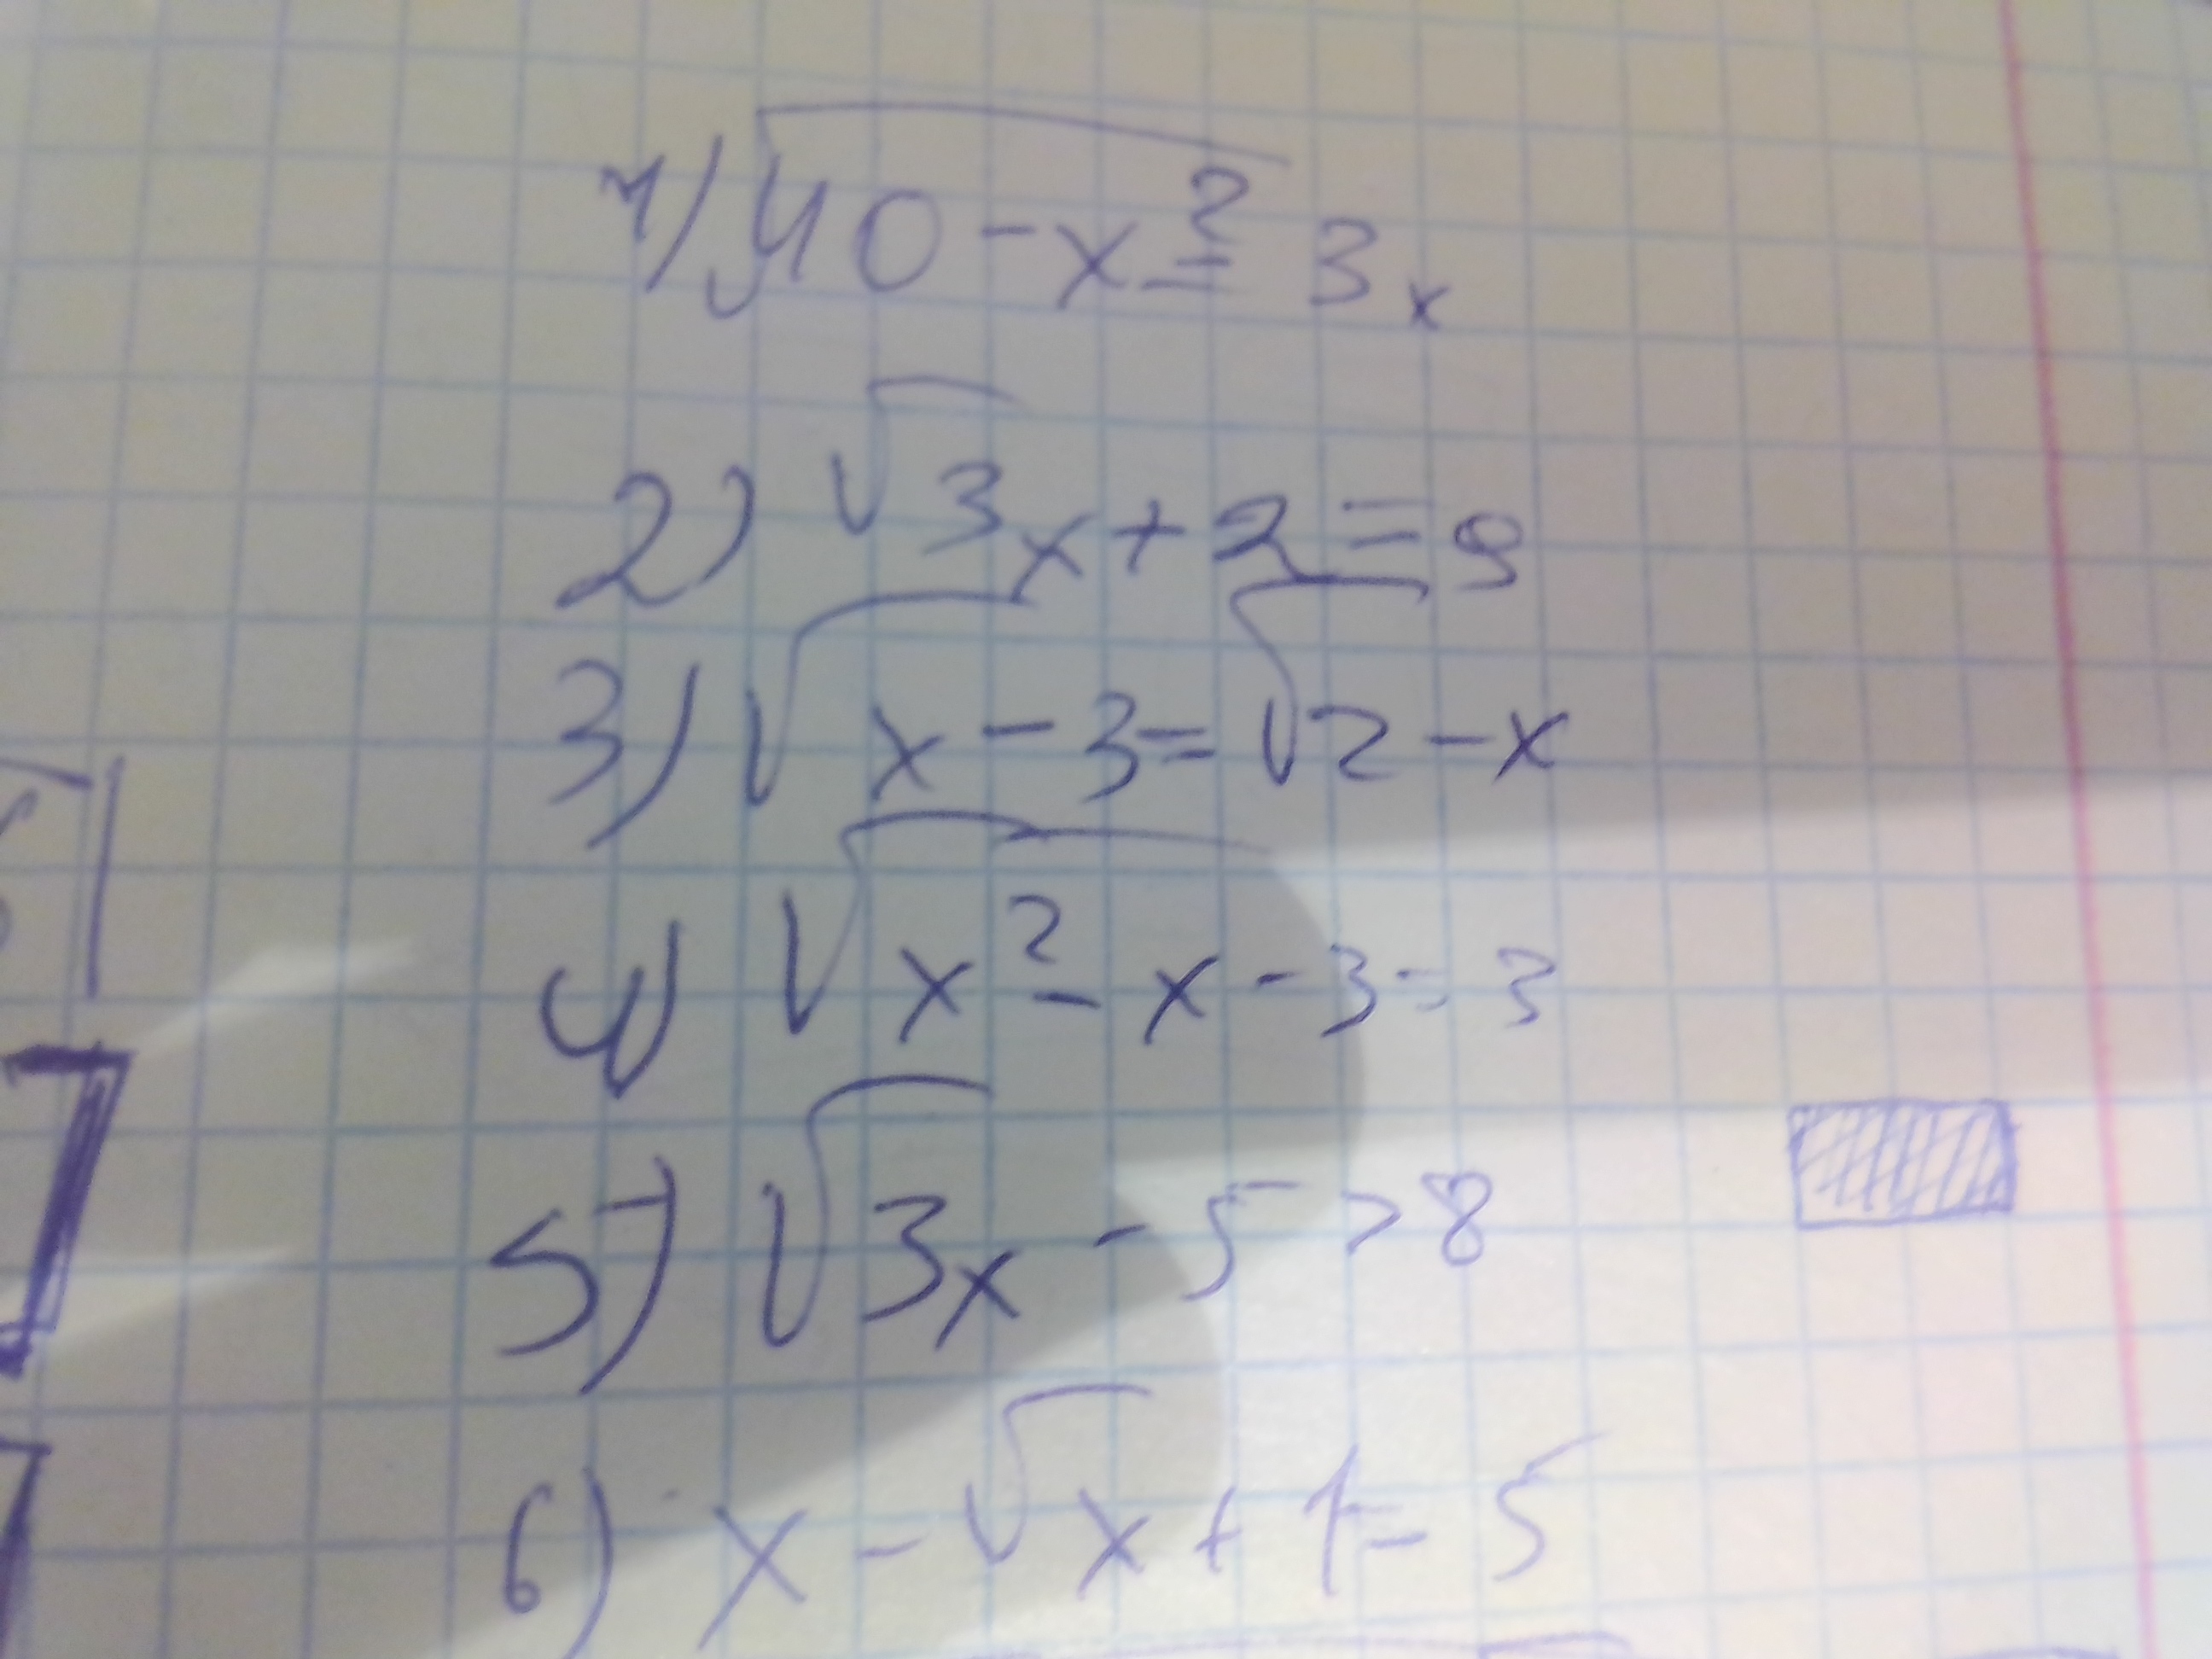 1) √40-x²=3x
2) √3x+2=9
3) √x-3=√2-x
4) √x²-x-3=3
5) √3x-5>8
6) x-√x+1=5